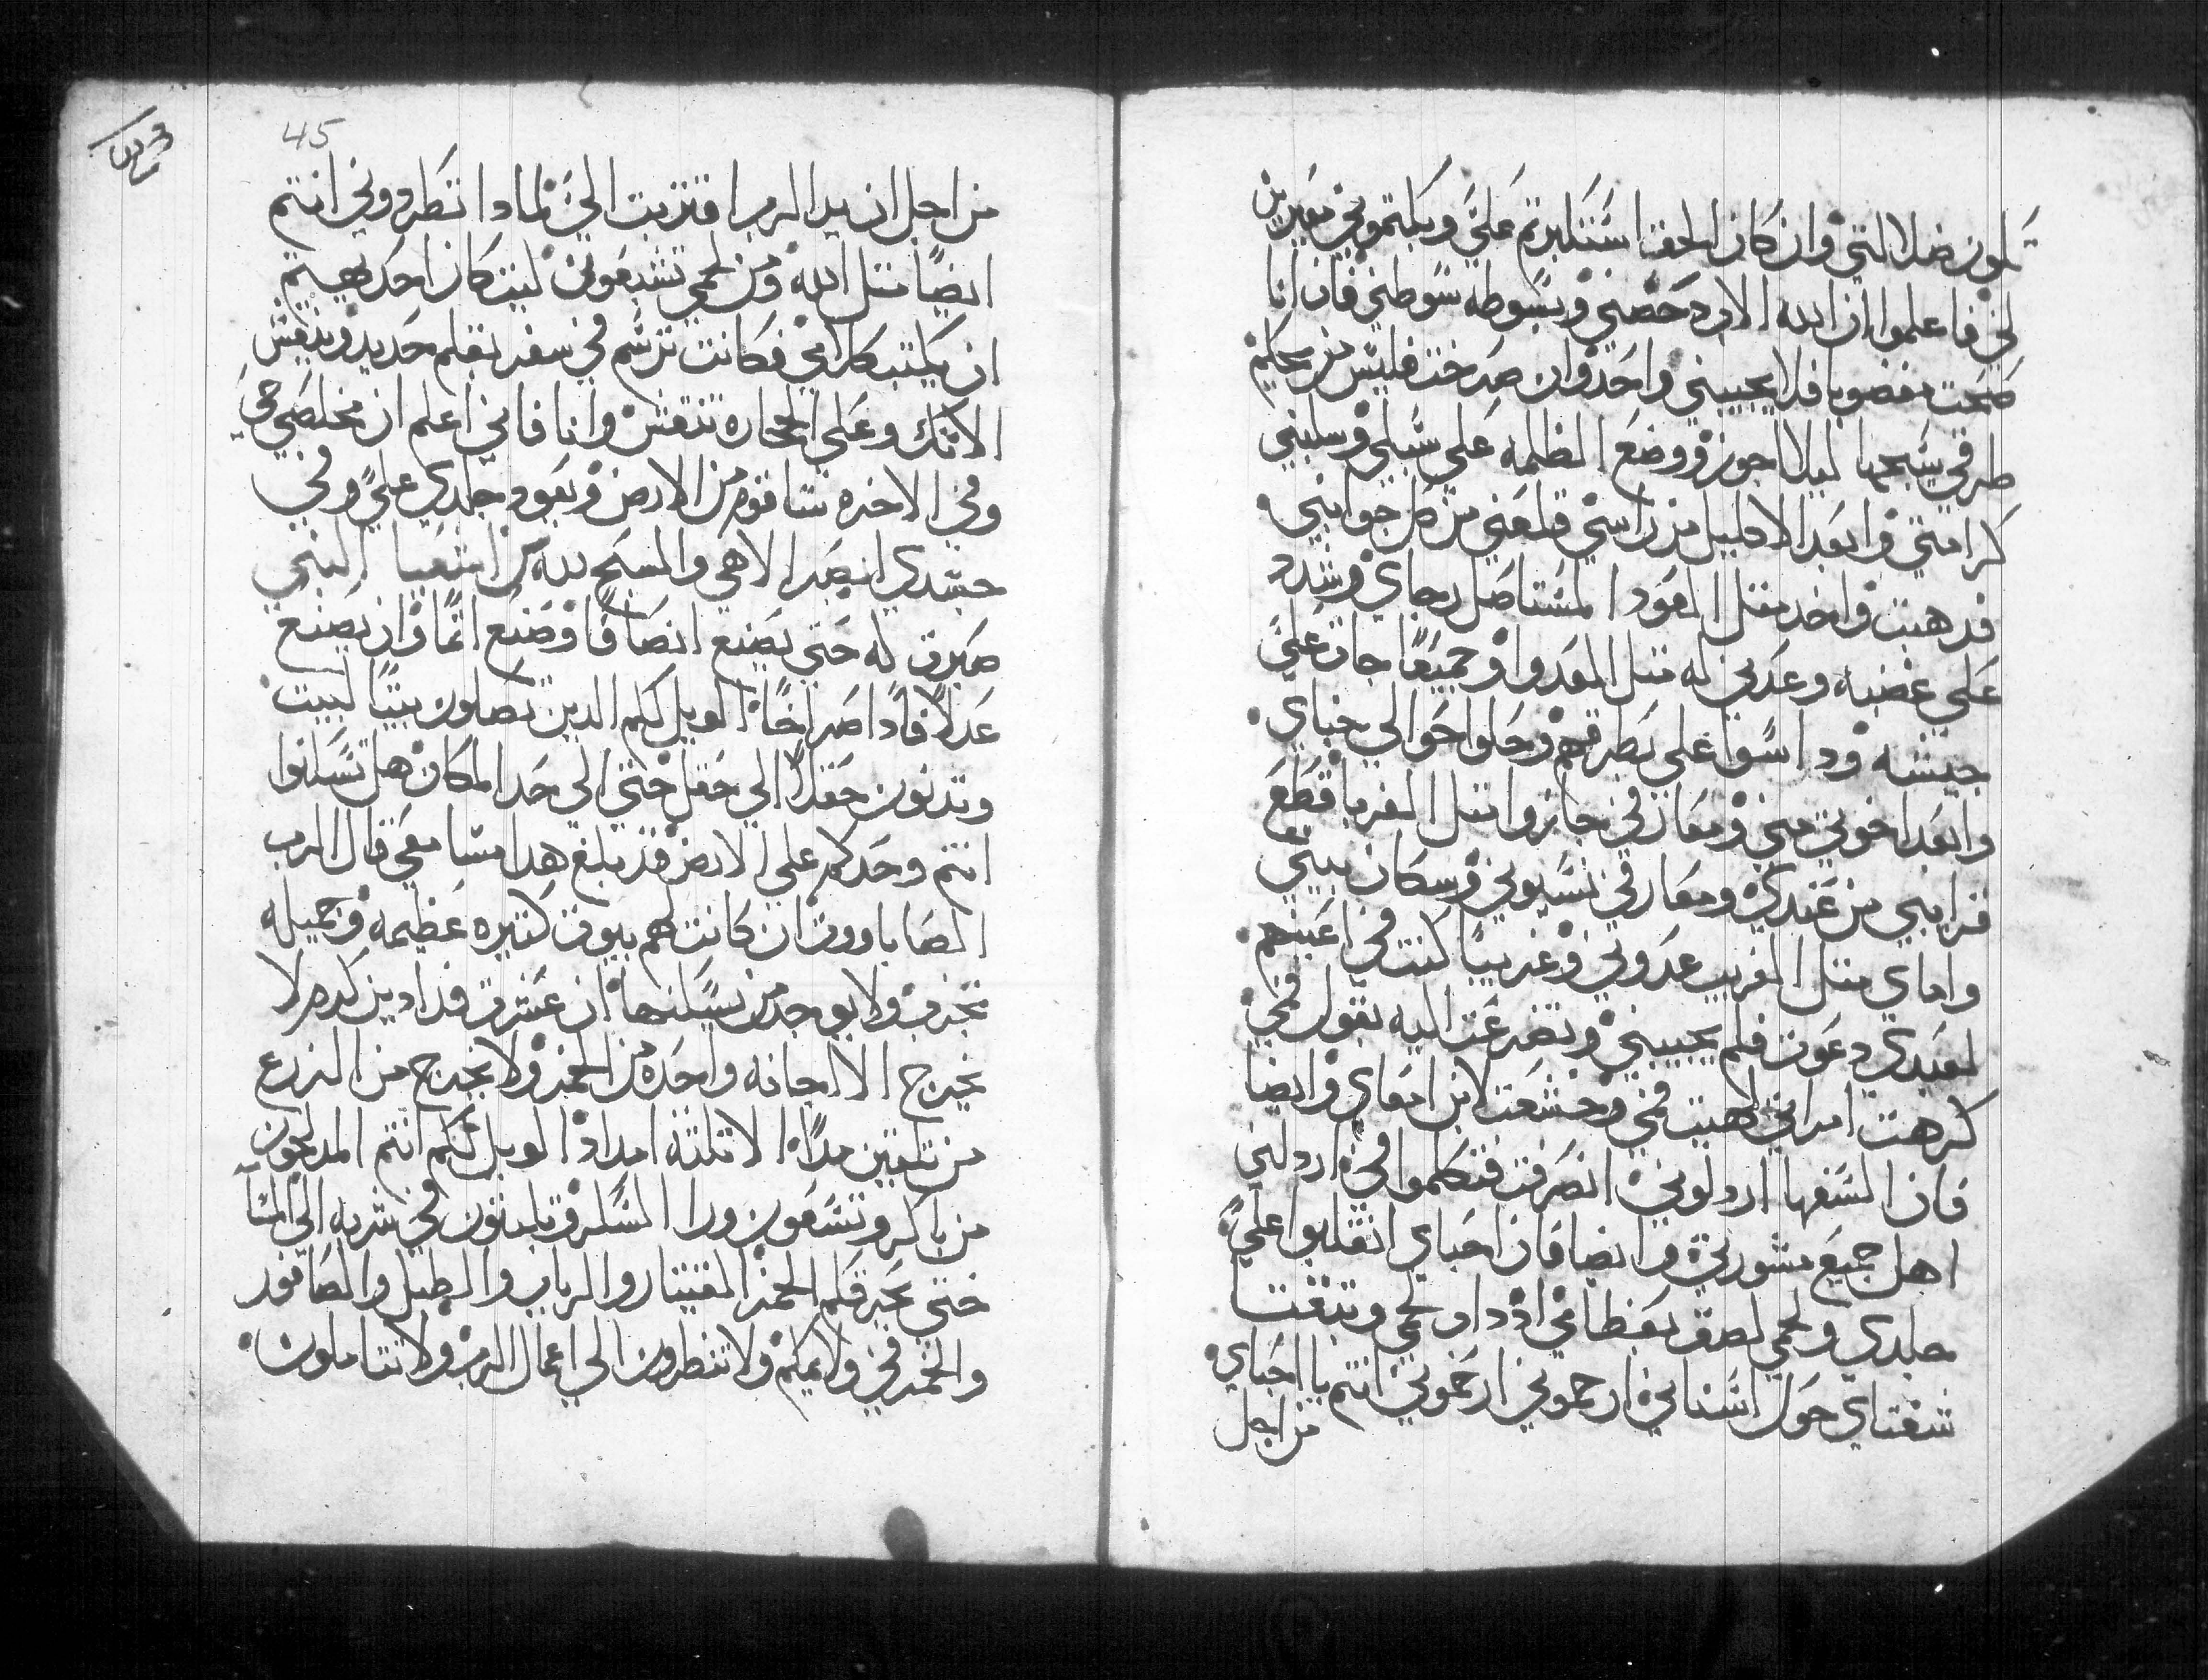 تكون ضلالتي وان كان الحقا استكبرتم علي وبكتموني معيرين
لي فاعلموا ان الله الان دحضني وبسوطه سوطني فان انا
صحت مغضوبا فلا يجيبني واحد وان صرخت فليس من يحكم
طرقي سيجها ليلا اجوز ووضع الظلمه علي سبلي وسلبني
كرامتي وابعد الاكليل من راسي قلعني من كل جوانبي
فدهبت واخد متل العود المستاصل رجاي وشدد
علي غضبه وعدني له متل العدوا وجميعا جات علي
جيشه وداسوا علي بطرقهم وحلوا حوالي خباي
وابعد اخوتي مني ومعارفي جازوا متل الغربا قطع
قرايبي من عندي ومعارفي نسيوني وسكان بيتي
واماي متل الغريب عدوني وغريبا كنت في اعينهم
لعبدي دعوت فلم يجيبني وتضرعت اليه بقول فمي
كرهت امراتي لهيب فمي وخشعت لابن امعاي وايضا
فان السفها اردلوني انصرفت فتكلموا في اردلني
اهل جميع مشورتي وايضا فان احباي انقلبوا علي
جلدي ولحمي لصق بعظامي اد داب لحمي وبقت
شفتاي حول اسناني ارحموني ارحموني انتم يا احباي
من اجل
45
من اجل ان يد الرب اقتربت الي لمادا تطردوني انتم
ايضا متل الله ومن لحمي تشبعون ليت كان احد يهيتم
ان يكتب كلامي فكانت ترسم في سفر بقلم حديد وينقش
الانك وعلي الحجاره تنقش وانا فاني اعلم ان مخلصي حي
وفي الاخره سنا قوم من الارض وبعود جلدي علي وفي
جسدي ابصر الاهي والمسبح لله من اشعيا النبي
صبرت له حتي يصنع انصافا وصنع اتما وان يصنع
عدلا فادا صراخا الويل لكم الدين تصلون بيتا لبيت
وتدنون حقلا الي حقل حتي الي حد المكان هل تسكنوا
انتم وحدكم علي الارض قد بلغ هدا مسامعي قال الرب
الصاباووت ان كانت لهم بيوت كتيره عظيمه وجميله
تخرب ولا يوجد من يسكنها ان عشرت فدادين كرم لا
يخرج الا اجانه واحده من الخمر ولا يخرج من الزرع
من تلتين مدا الا تلته امداد الويل لكم انتم المدلجون
من باكر وتسعون ورا السكر وتلبتون في شربه الي المسا
حتي تحرقكم الخمر القيتار والرباب والطبل والصافور
والخمر في ولايمكم ولا تنظرون الي اعمال الرب ولا تتاملون